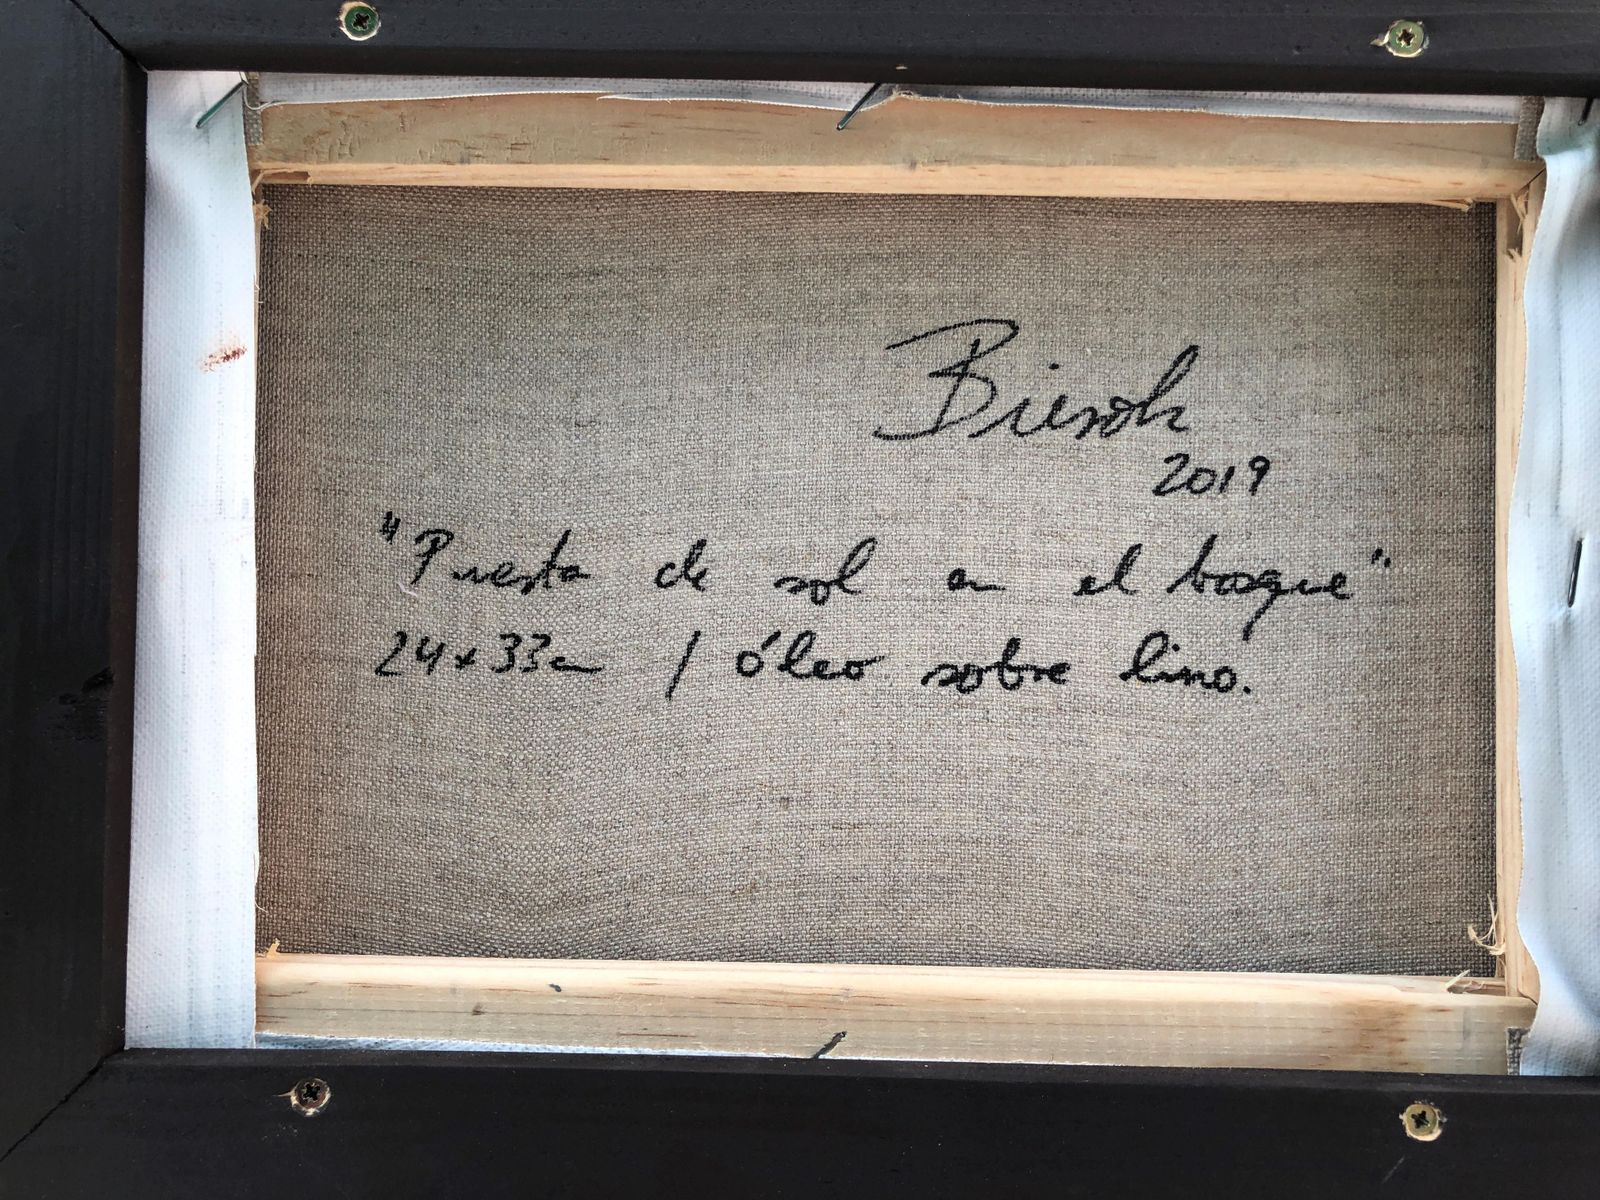 Biesok
2019
"Puesta de sol en el bosque"
24x33cm / óleo sobre lino.